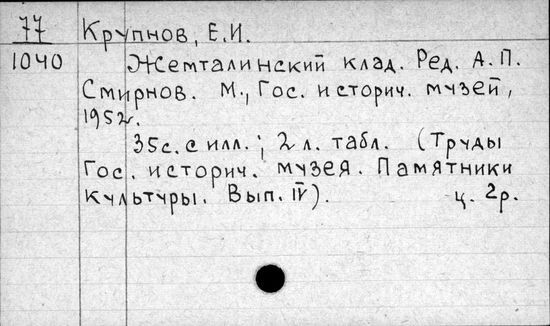 77 Крупнов, Е.И.
1040 Жемталинский клад. Ред. А.П.
Смирнов. М., Гос. историч. музей,
1952.
35с. с илл.; 2 л. табл. (Труды
Гос. историч. музея. Памятники
культуры. Вып. IV). ц. 2р.